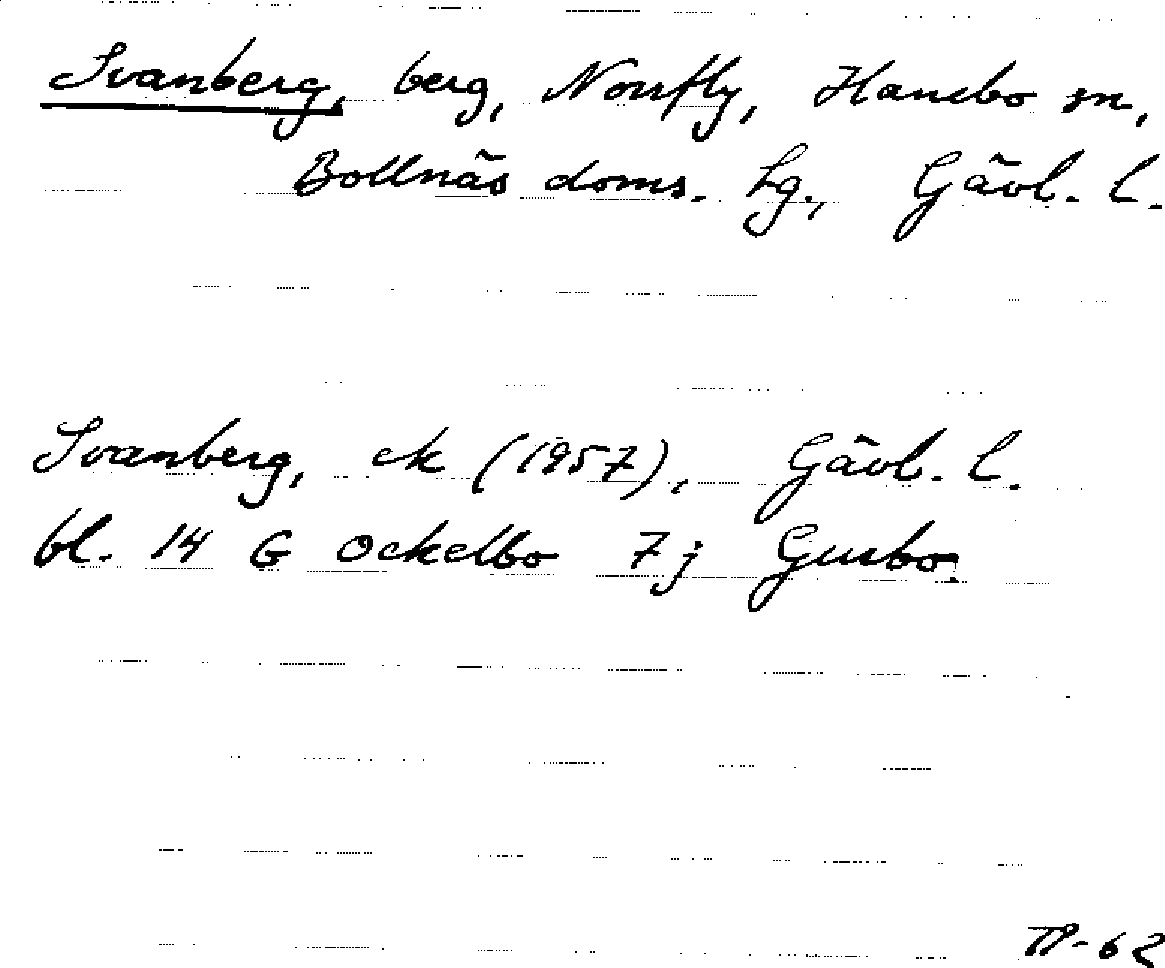 Svanberg, berg, Norrfly, Hanebo sn,
Bollnäs doms. hg., Gävl. l.
Svanberg, ek (1957), Gävl. l.
bl. 14 G Ockelbo 7j Gusbo.
TP-62